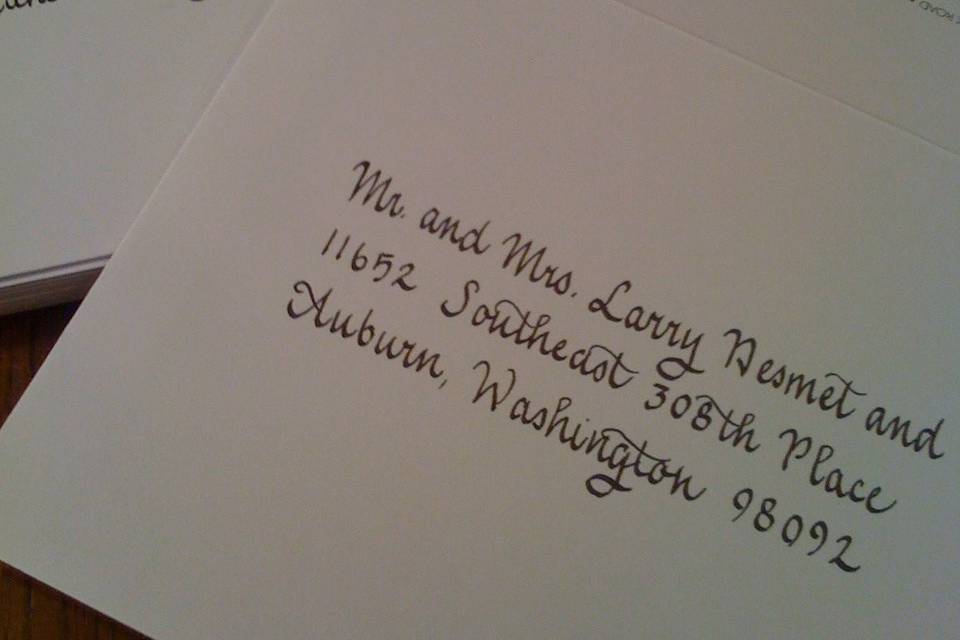 Mr. and Mrs. Larry Desmet and
11652 Southeast 308th Place
Auburn, Washington 98092
ROAD